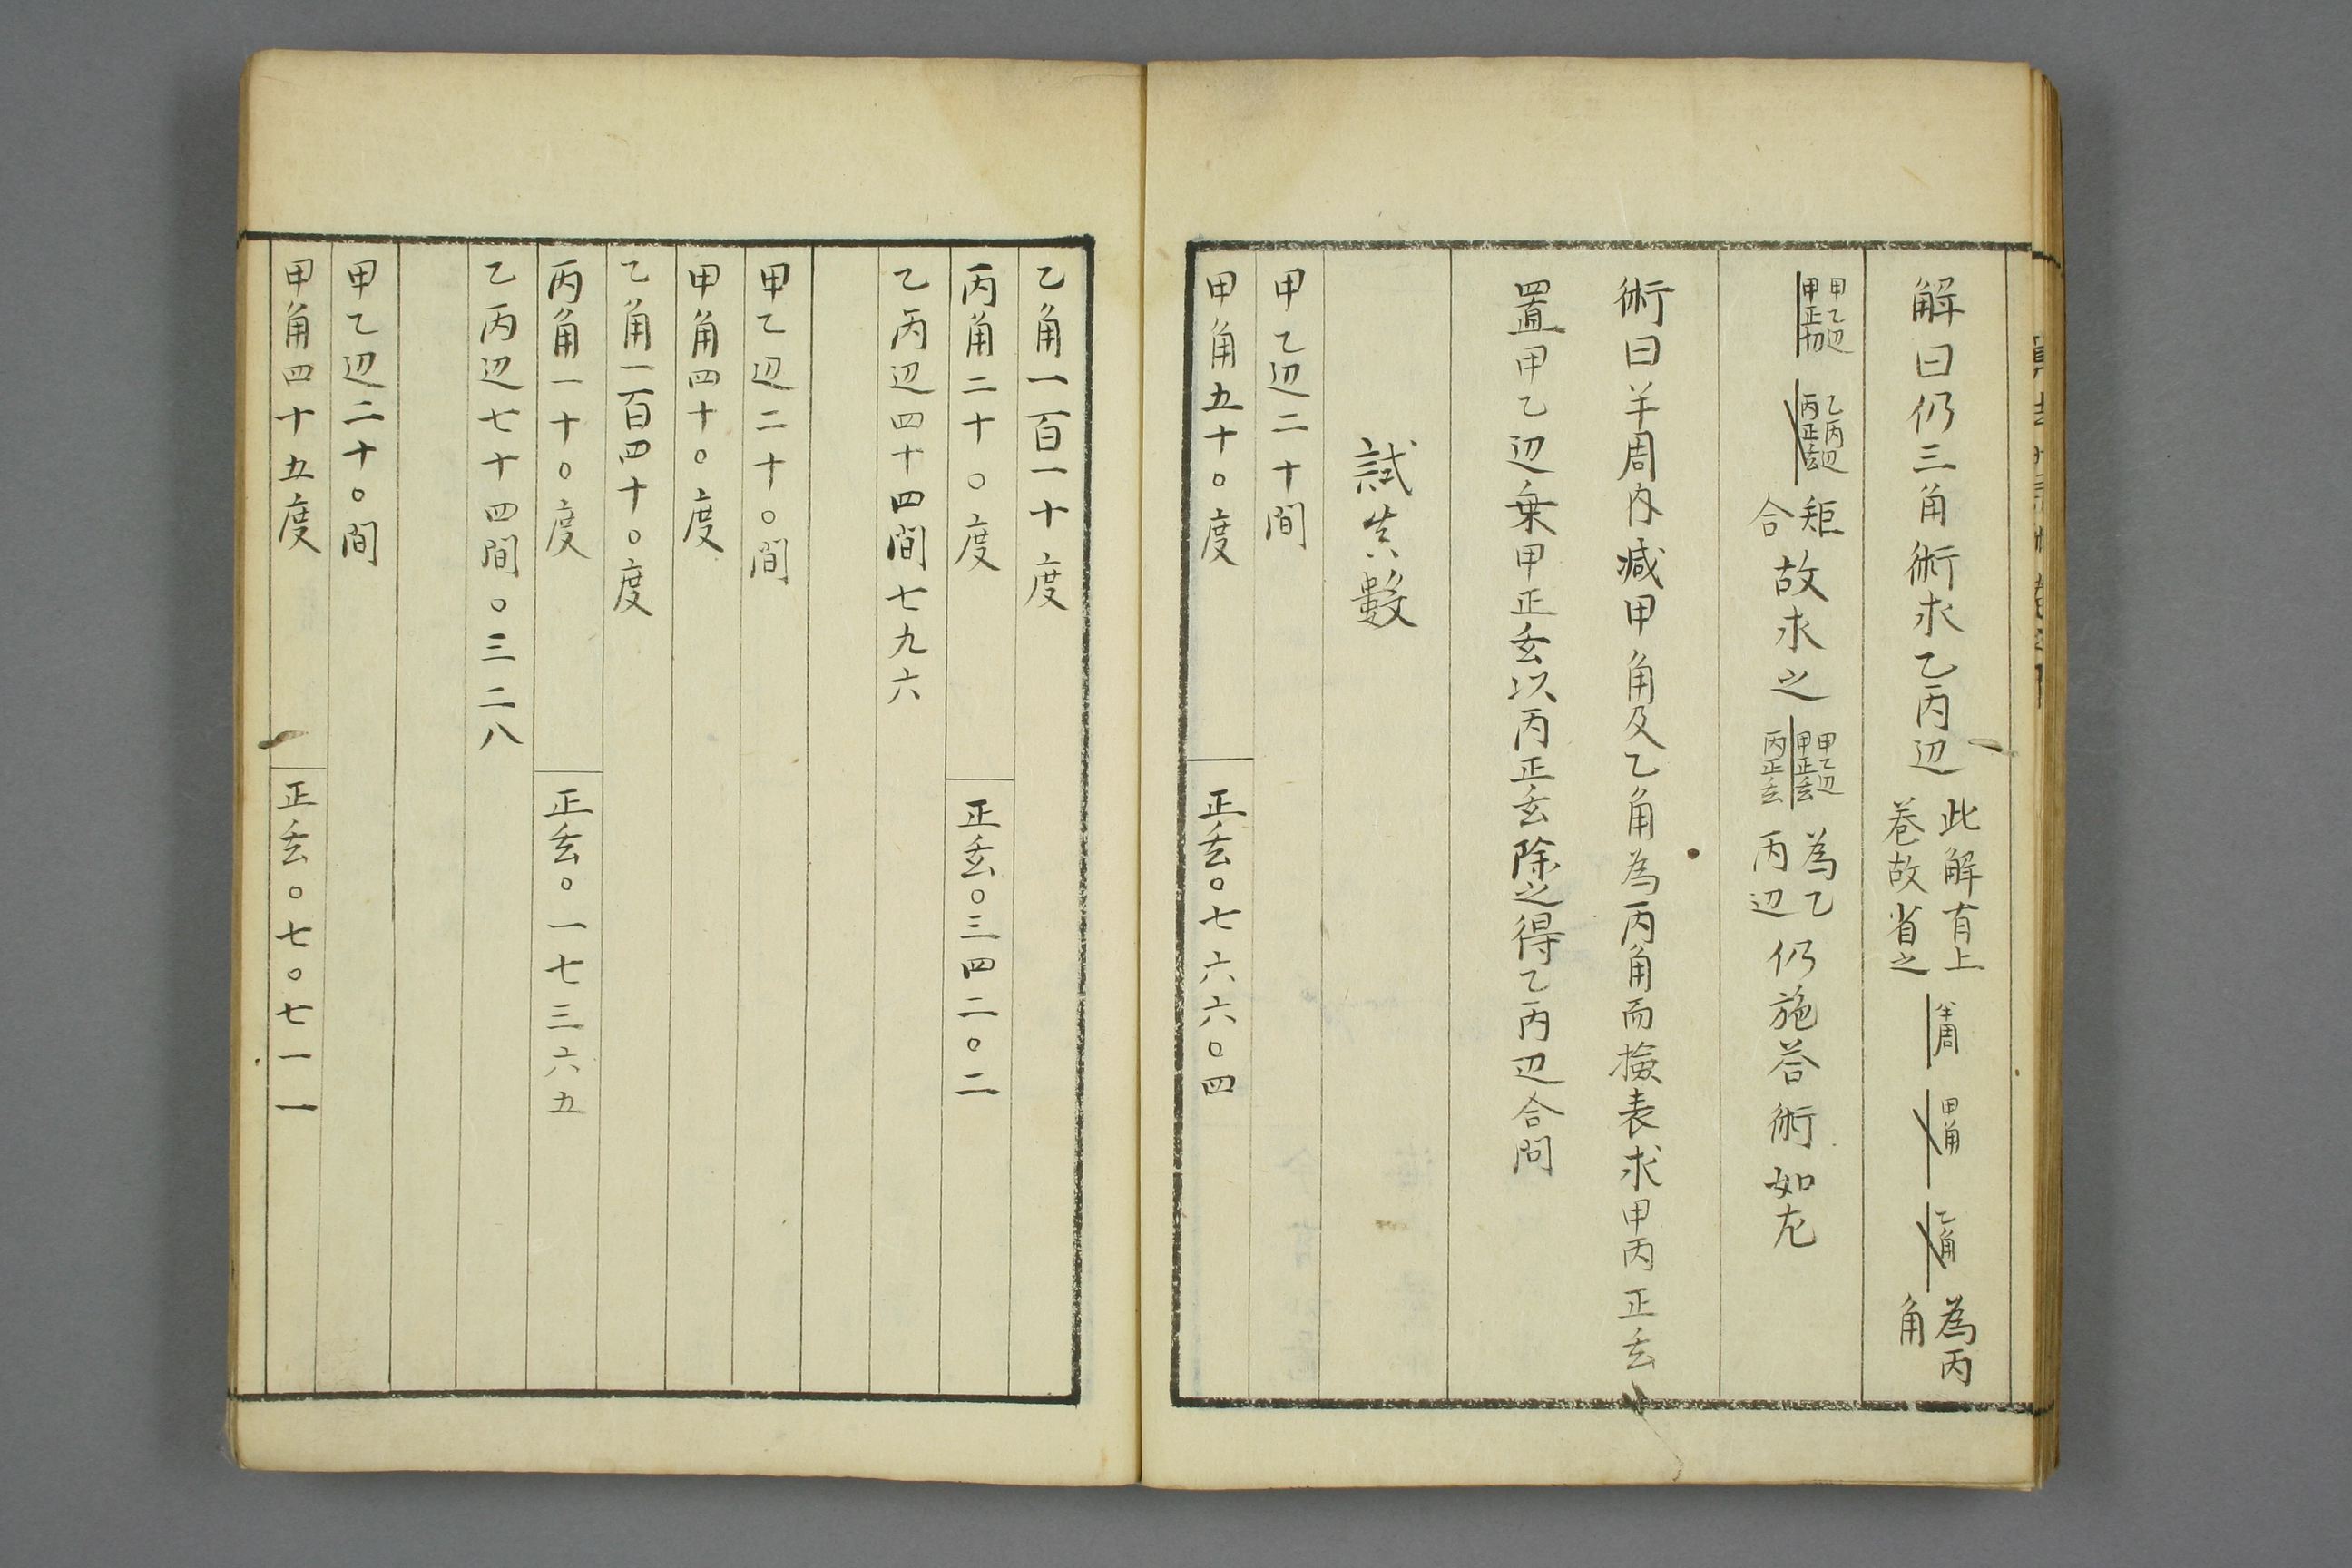 解曰仍三角術求乙丙辺 此解有上巻故省之 半周 甲角 乙角 為丙角
甲乙辺甲正 乙丙辺丙正玄 矩合 故求之 甲乙辺甲正玄丙正玄 為乙丙辺 仍施荅術如左
術曰半周内減甲角及乙角為丙角而撿表求甲丙正玄
置甲乙辺乗甲正玄以丙正玄除之得乙丙辺合問
試真數
甲乙辺二十間
甲角五十〇度 正玄〇七六六〇四
乙角一百一十度
丙角二十〇度 正玄〇三四二〇二
乙丙辺四十四間七九六
甲乙辺二十〇間
甲角四十〇度
乙角一百四十〇度
丙角一十〇度 正玄〇一七三六五
乙丙辺七十四間〇三二八
甲乙辺二十〇間
甲角四十五度 正玄〇七〇七一一